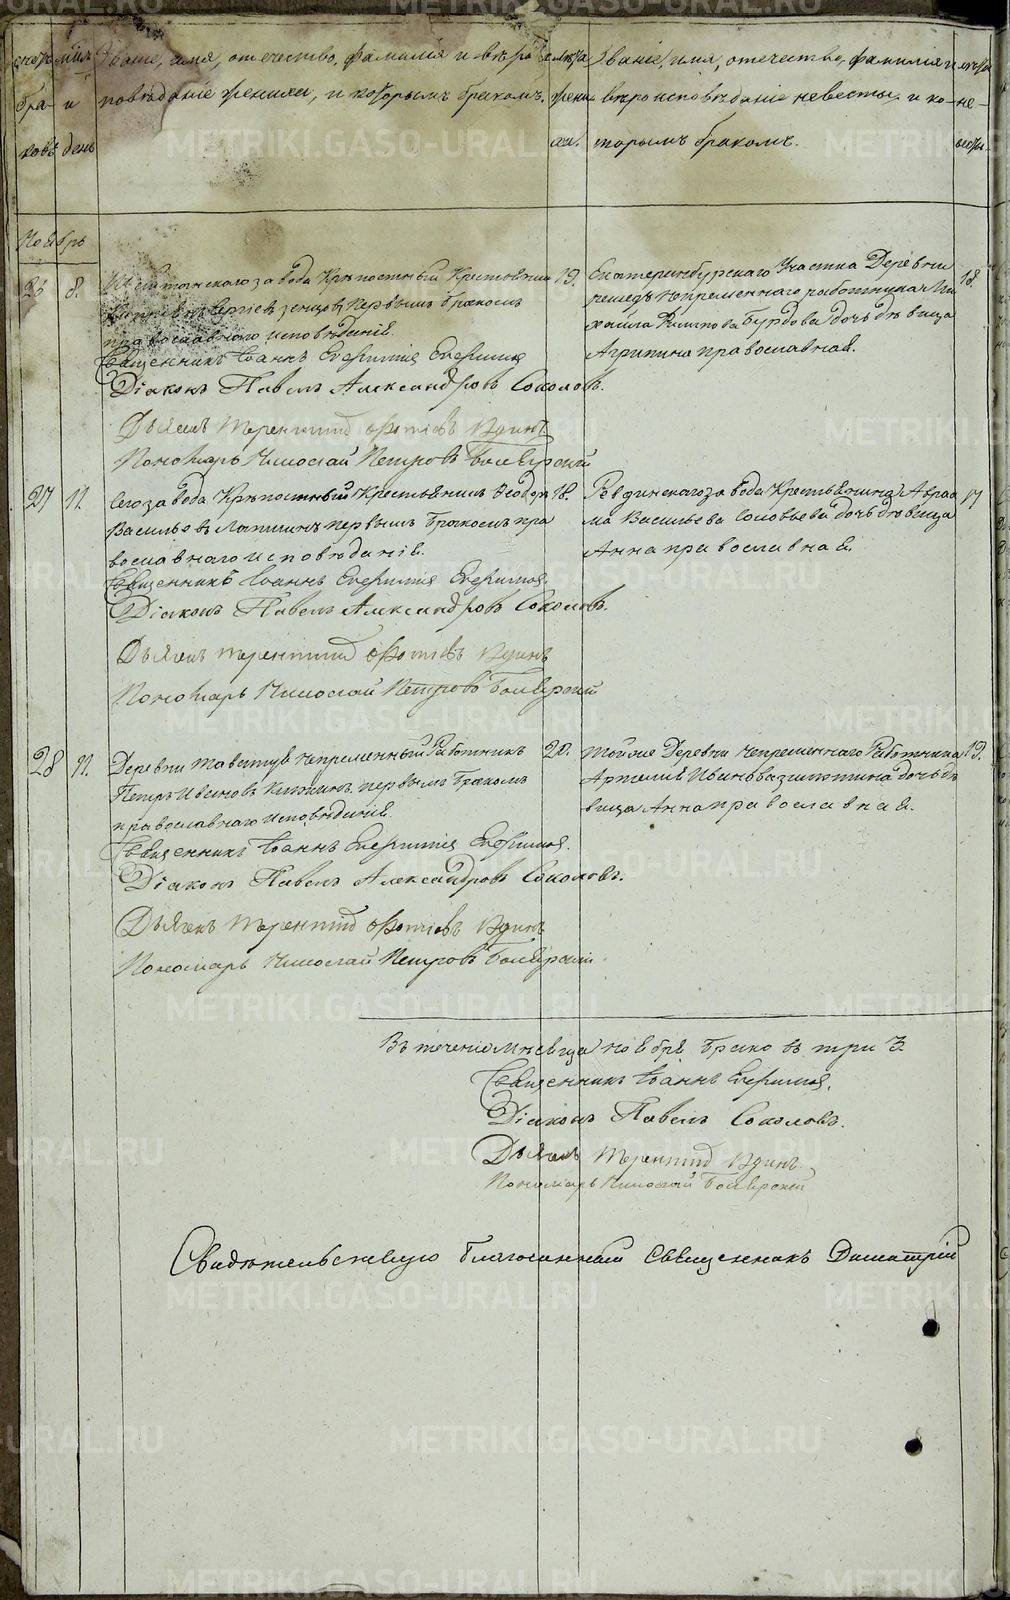 счетъ бра-ковъ
м-цъ и день
Званіе, имя, отечество, фамилія и вѣро
исповѣданіе жениха, и которымъ бракомъ.
лѣта жени ха.
Званіе, имя, отечество, фамилія и
вѣроисповѣданіе невесты, и ко-
торымъ бракомъ.
лѣта не-весты.
Ноябрь
26 8. завода Крѣпостный Крестьянин 19.
первымъ бракомъ
православнаго исповѣданія.
Священникъ Іоаннъ Евфиміа Евфиміа
Діаконъ Павелъ Александровъ Соколовъ.
Дьячекъ Терентій Фотіевъ
Пономарь Николай Петровъ
Екатеринбурскаго Участка Деревни 18.
непременнаго работника Ми
хайла Филипова Бурдова дочь девица
Агрипина православная.
27 11. Сего завода Крѣпостный Крестьянинъ Ѳеодоръ 18.
Васильевъ Лапшинъ первымъ бракомъ пра
вославнаго исповѣданія.
Священникъ Іоаннъ Евфиміа Евфиміа.
Діаконъ Павелъ Александровъ Соколовъ.
Дьячекъ Терентій Фотіевъ
Пономарь Николай Петровъ
Ревдинскаго завода Крестьянина Авраа 17
ма Васильева Соловьева дочь девица
Анна православная.
28 11. Деревни непременный Работникъ 20.
Петръ Ивановъ первымъ бракомъ
православнаго исповѣданія.
Священникъ Іоаннъ Евфиміа Евфиміа.
Діаконъ Павелъ Александровъ Соколовъ.
Дьячекъ Терентій Фотіевъ
Пономарь Николай Петровъ
Той же Деревни непременнаго Работника 19.
Иванова дочь де
вица Анна православная.
Въ теченіе месяца ноября браковъ три 3.
Священникъ Іоаннъ Евфиміа.
Діаконъ Павелъ Соколовъ.
Дьячекъ Терентій
Пономарь Николай
Свидѣтельствую Благочинный Священникъ Димитрій
METRIKI.GASO-URAL.RU